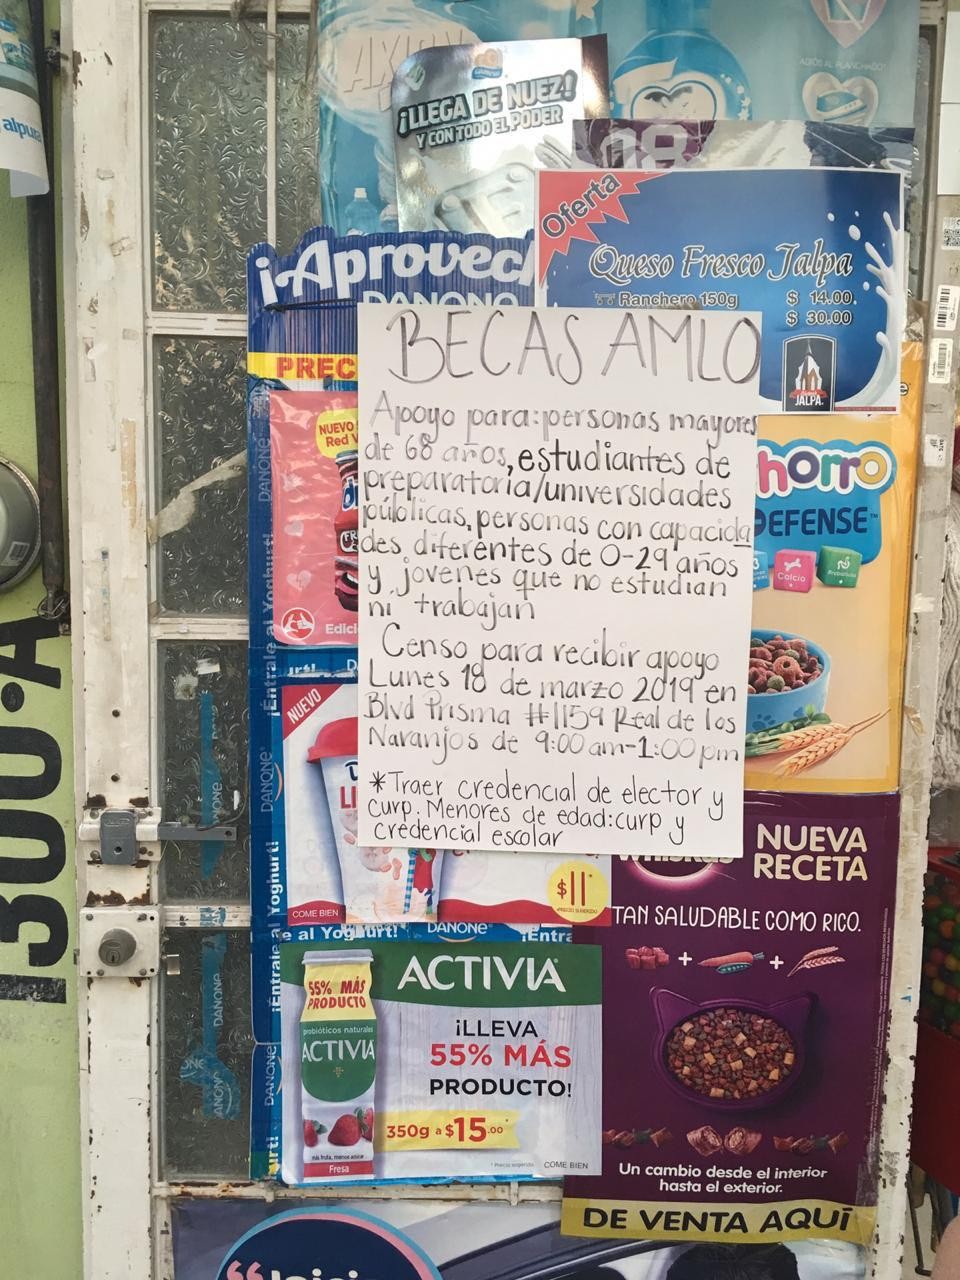 alpura
AXION
ADIÓS AL PLANCHADO
¡LLEGA DE NUEZ!
Y CON TODO EL PODER
Oferta
Queso Fresco Jalpa
Ranchero 150g $ 14.00
$ 30.00
JALPA
¡Aprovech
DANONE
PREC
NUEVO
Red V
Edici
BECAS AMLO
Apoyo para: personas mayores
de 68 años, estudiantes de
preparatoria/universidades
públicas, personas con capacida
des diferentes de 0-29 años
y jóvenes que no estudian
ni trabajan
Censo para recibir apoyo
Lunes 18 de marzo 2019 en
Blvd Prisma #1159 Real de los
Naranjos de 9:00 am-1:00 pm
*Traer credencial de elector y
curp. Menores de edad: curp y
credencial escolar
horro
DEFENSE™
Calcio
300-A
DANONE
¡Entrale al Yoghurt!
NUEVO
COME BIEN
$11
DANONE
ACTIVIA
55% MÁS
PRODUCTO
probióticos naturales
ACTIVIA
Fresa
¡LLEVA
55% MÁS
PRODUCTO!
350g a $15.00
* Precio sugerido COME BIEN
NUEVA
RECETA
TAN SALUDABLE COMO RICO.
Un cambio desde el interior
hasta el exterior.
DE VENTA AQUÍ